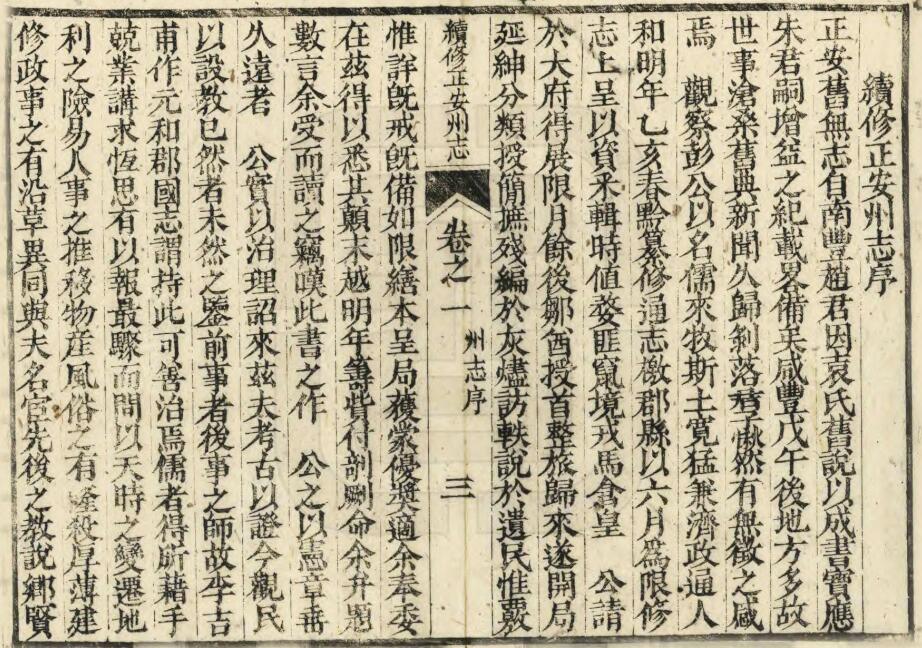 續修正安州志序
正安舊無志自南豐趙君因袁氏舊說以成書寶應
朱君嗣增益之紀載畧備矣咸豐戊午後地方多故
世事滄桑舊典新聞久歸剝落君子愀然有無徵之感
焉 觀察彭公以名儒來牧斯土寬猛兼濟政通人
和明年乙亥春黔纂修通志檄郡縣以六月爲限修
志上呈以資采輯時值婺匪竄境戎馬倉皇 公請
於大府得展限月餘後鄒酋授首整旅歸來遂開局
延紳分類授簡撫殘編於灰燼訪軼說於遺民惟覈
續修正安州志 卷之一 州志序 三
惟詳旣戒旣備如限繕本呈局獲蒙優獎適余奉委
在茲得以悉其顛末越明年籌貲付剞劂命余弁題
數言余受而讀之竊嘆此書之作 公之以憲章垂
久遠者 公實以治理詔來茲夫考古以證今觀民
以設教已然者未然之鑒前事者後事之師故李吉
甫作元和郡國志謂持此可善治焉儒者得所藉手
兢業講求恆思有以報最驟而問以天時之變遷地
利之險易人事之推移物産風俗之有隆殺厚薄建
修政事之有沿革異同與夫名宦先後之教說鄉賢